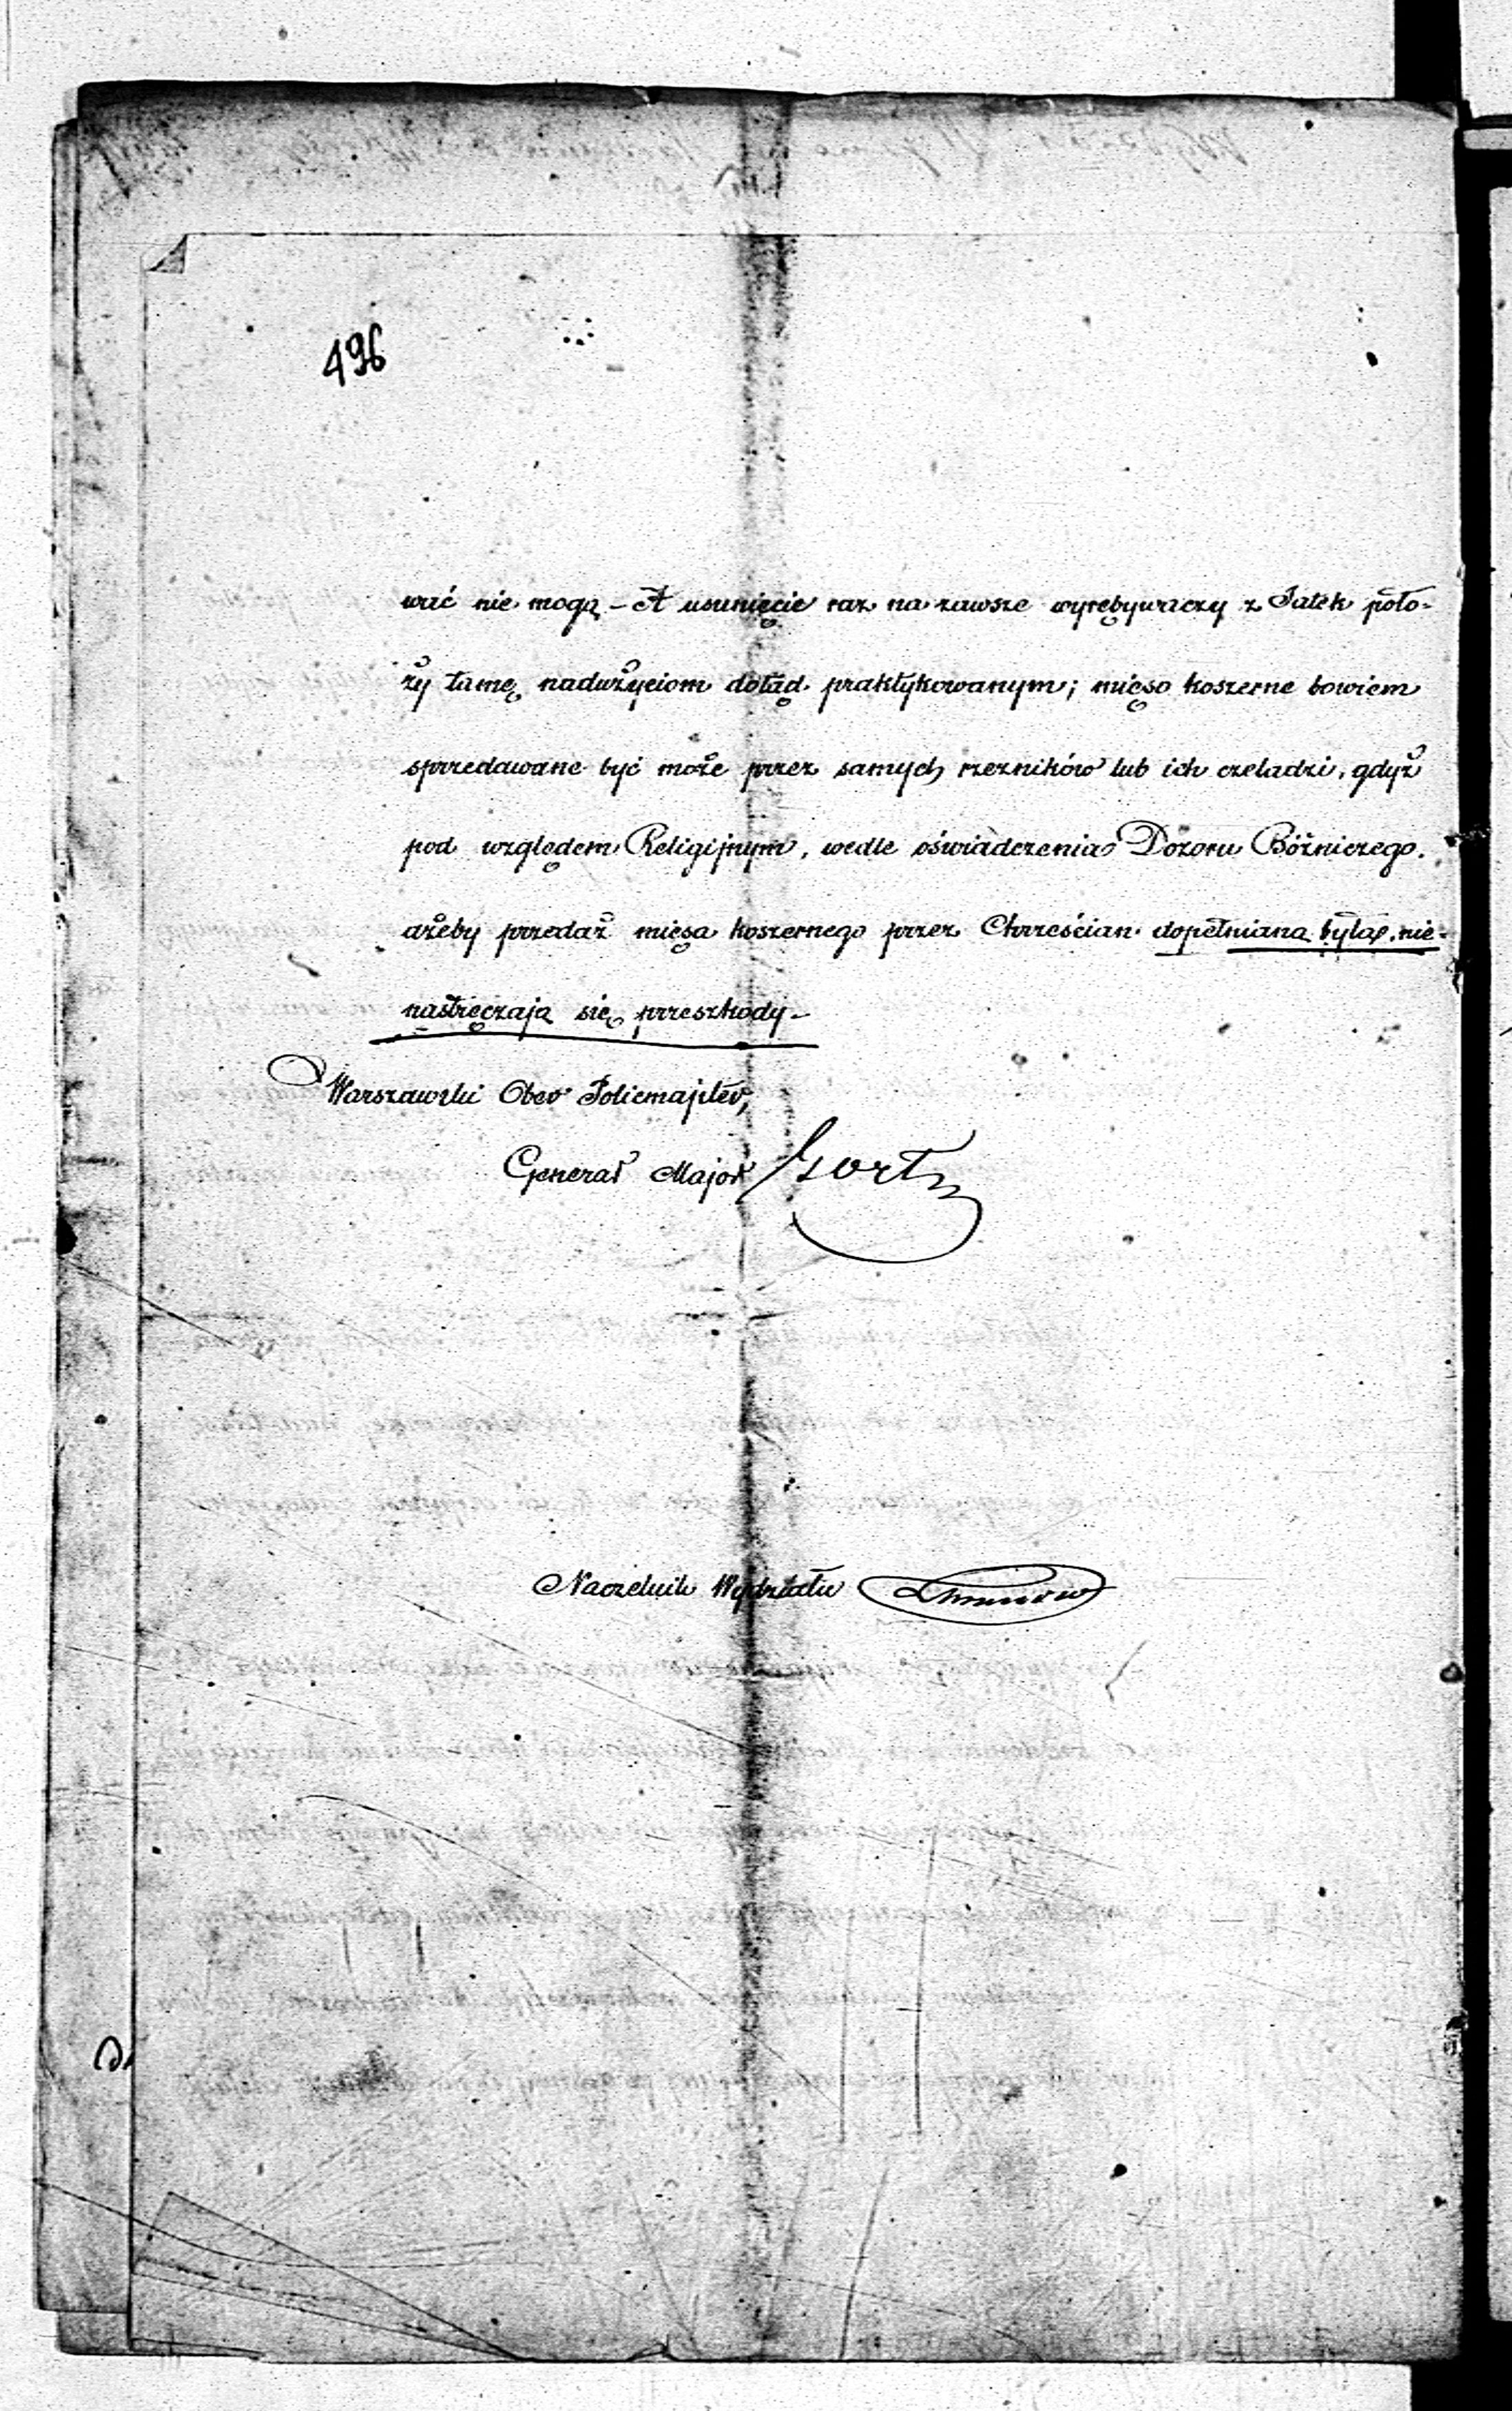 496
wać nie mogą – A usunięcie raz na zawsze wyrębywaczy z Jatek poło-
ży tamę nadużyciom dotąd praktykowanym; mięso koszerne bowiem
sprzedawane być może przez samych rzezników lub ich czeladzi, gdyż
pod względem Religijnym, wedle oświadczenia Dozoru Bóżniczego,
ażeby przedaż mięsa koszernego przez Chrześcian dopełniana była, nie-
nastręczają się przeszkody –
Warszawski Ober Policmajster,
Generał Major
Naczelnik Wydziału